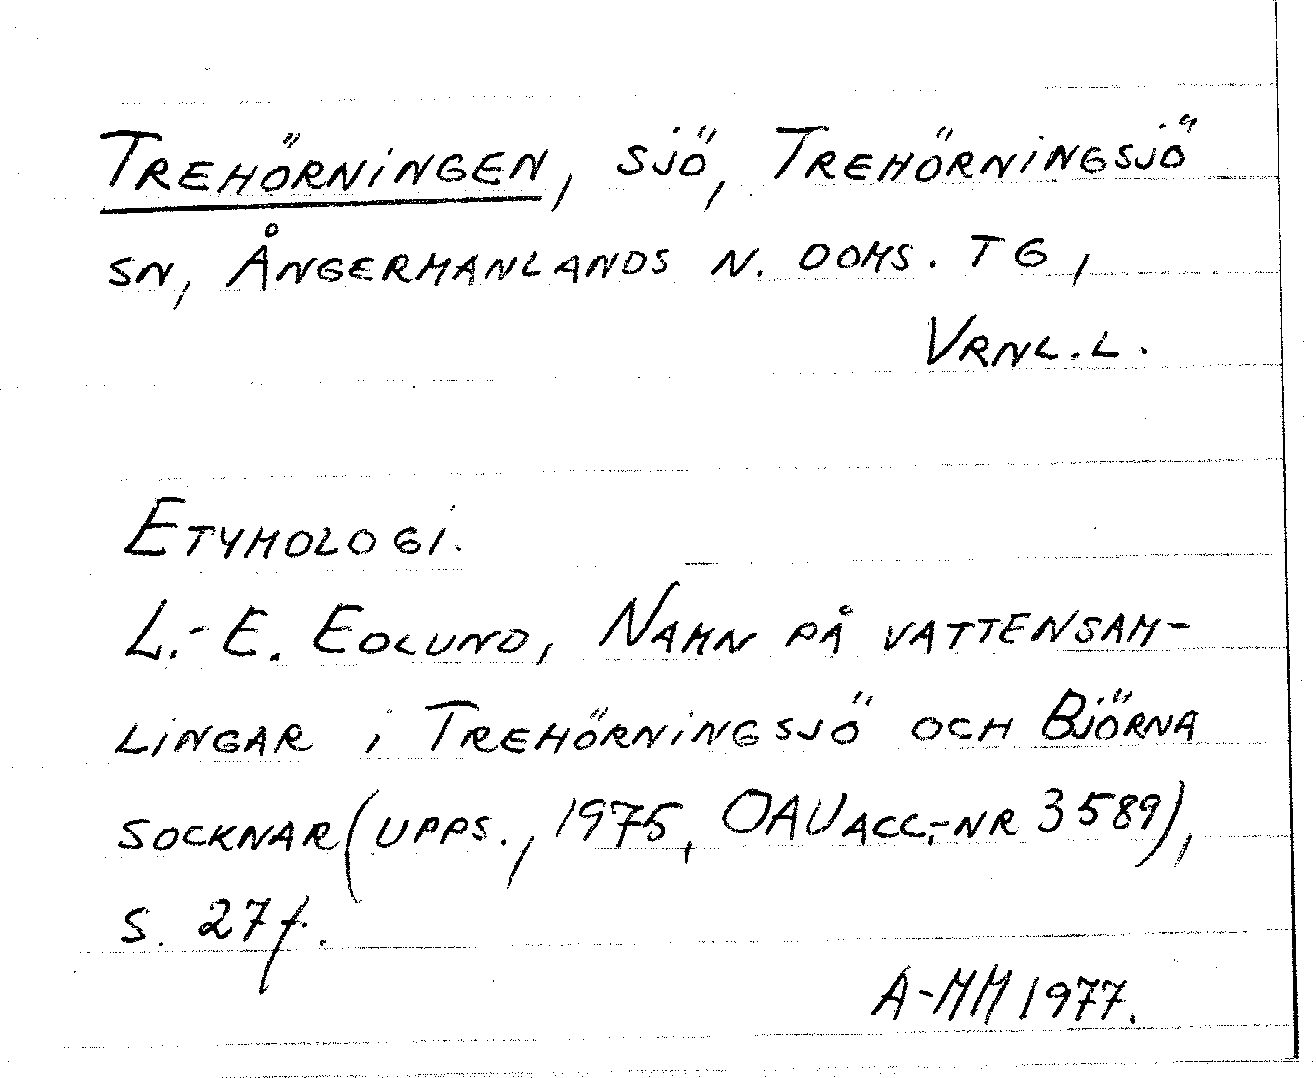 TREHÖRNINGEN, SJÖ, TREHÖRNINGSJÖ
SN, ÅNGERMANLANDS N. DOMS. TG,
VRNL.L.
ETYMOLOGI.
L.-E. EDLUND, NAMN PÅ VATTENSAM-
LINGAR I TREHÖRNINGSJÖ OCH BJÖRNA
SOCKNAR (UPPS., 1975, OAU ACC.-NR 3589),
S. 27 f.
A-MM 1977.